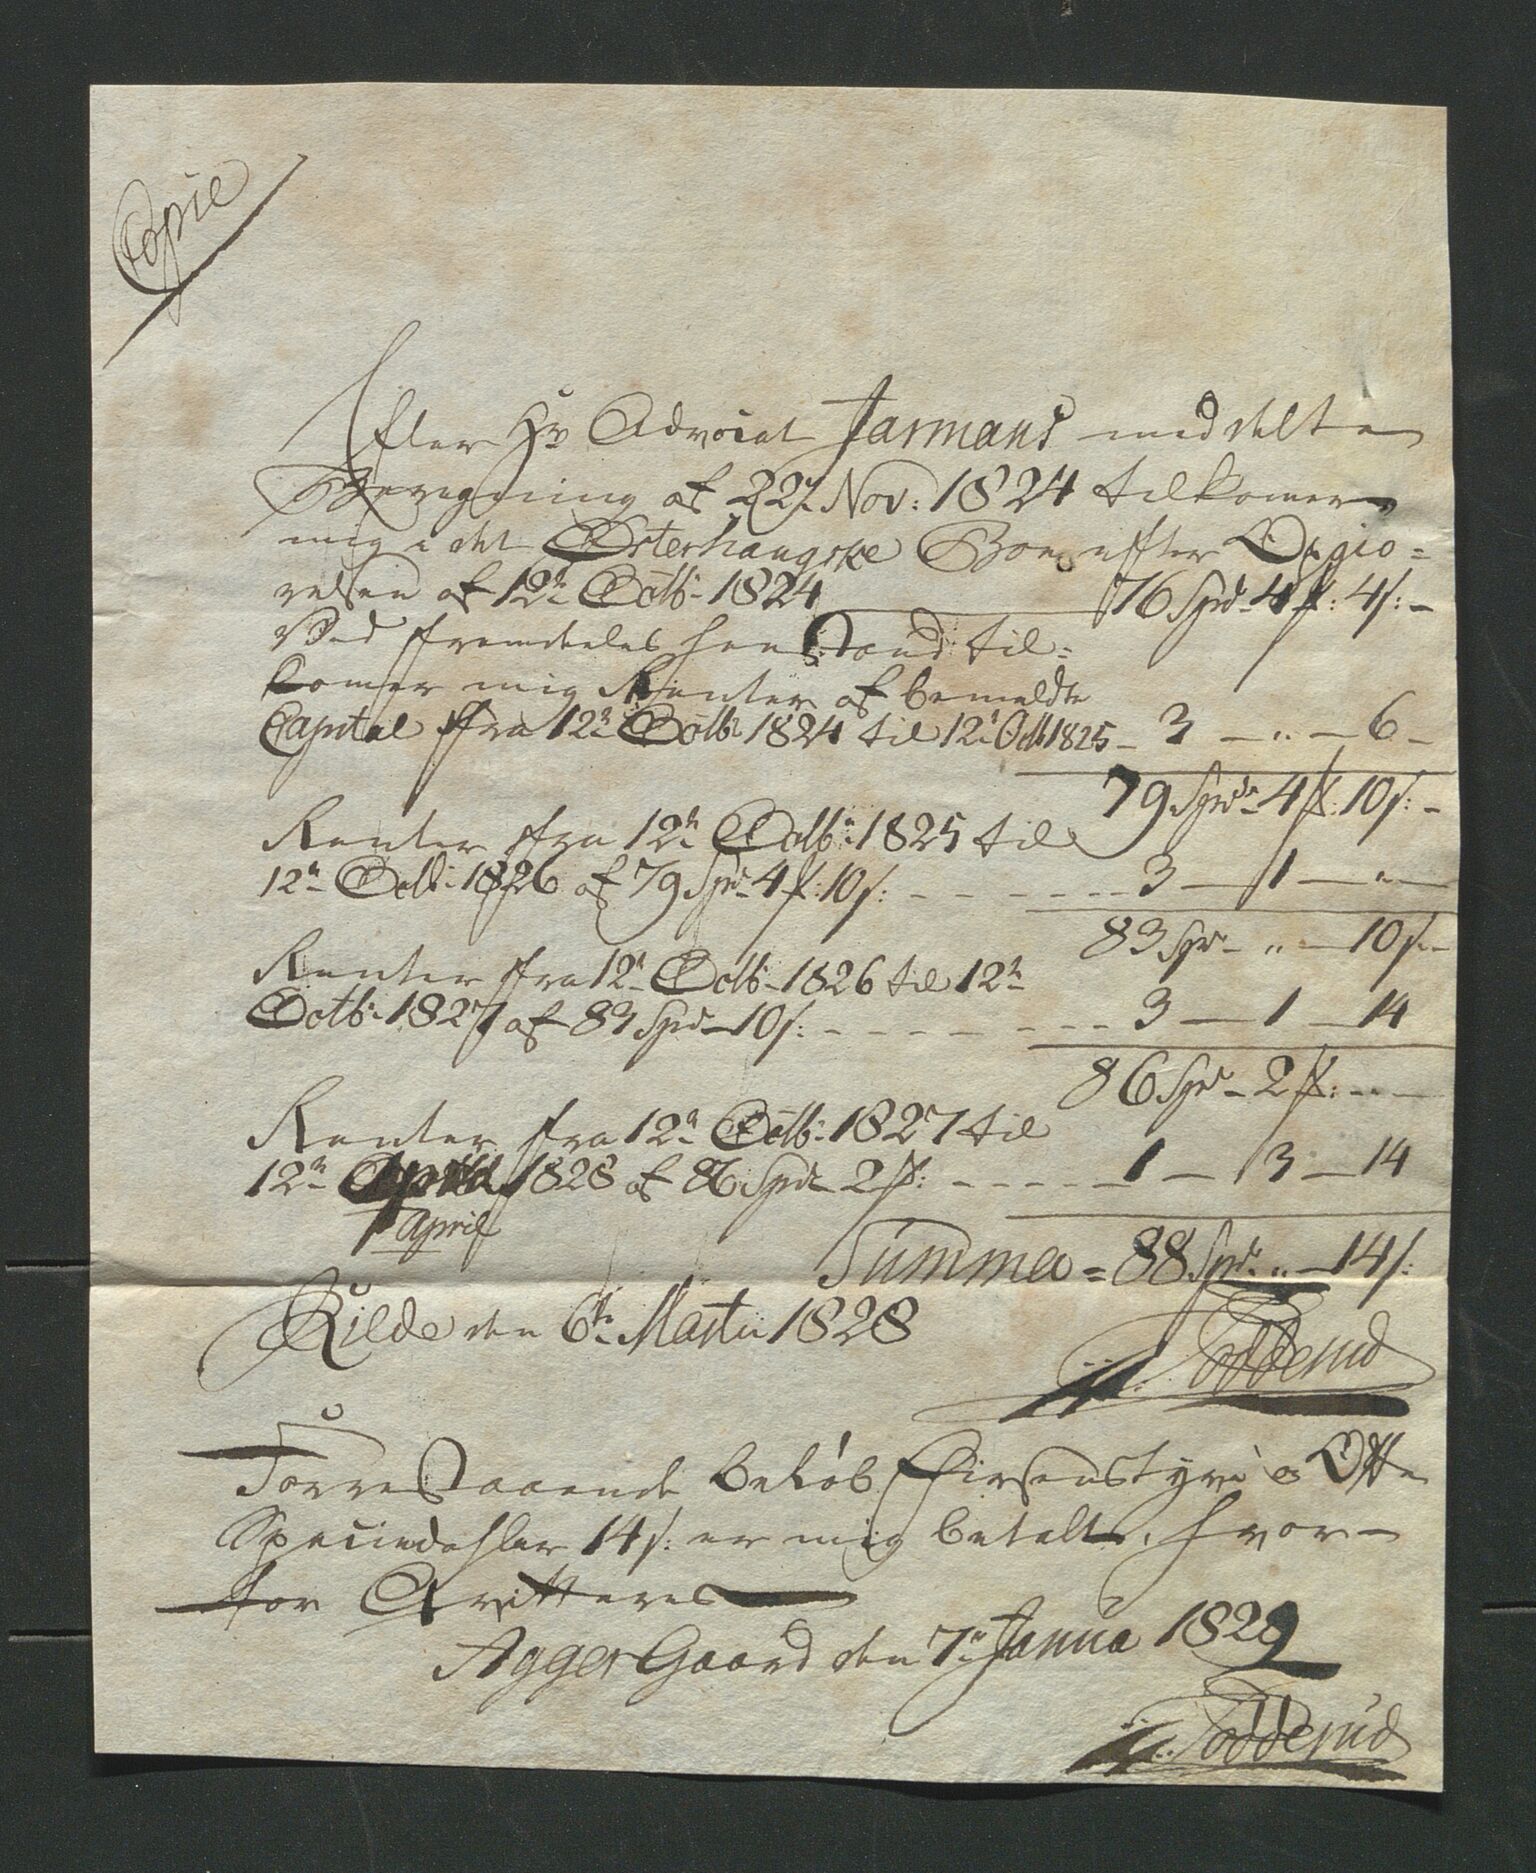 Copie
Efter Hr Advocat Jarmans meddelte
Beregning af 22n Nov: 1824 tilkomer
mig i det Østerhaugske Boe efter Opgiö=
relsen af 12te Octb: 1824 76 Spd - 4 ß: 4 s: -
Ved fremdeles henstand til=
komer mig Renter af bemeldte
Capital fra 12te Octb: 1824 til 12te Octb 1825 - 3 - „ - 6 -
79 Spdr - 4 ß: 10 s: -
Renter fra 12te Octbr: 1825 til
12te Octb: 1826 af 79 Spd 4 ß: 10 s: - - - - - 3 - 1 - „
83 Spr - „ - 10 s -
Renter fra 12te Octb: 1826 til 12te
Octb: 1827 af 83 Spd - 10 s: - - - - - - - 3 - 1 - 14
86 Spd - 2 ß: - „ -
Renter fra 12te Octb: 1827 til
12te April 1828 af 86 Spd - 2 ß: - - - - - 1 - 3 - 14
April
Summa = 88 Spd „ - 14 s:
Kilde den 6te Marti 1828
Fodderud
Forrestaaende Beløb Firsenstyve og Otte
Speciedahler 14 s: er mig betalt, hvor-
for Qvitteres
AggerGaard den 7n Janua 1829
Fodderud